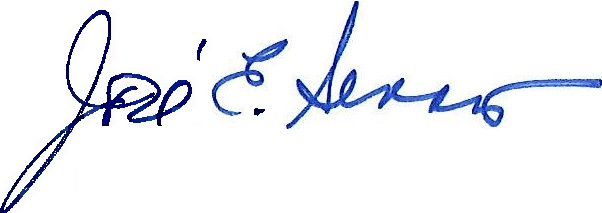 José E. Serrano